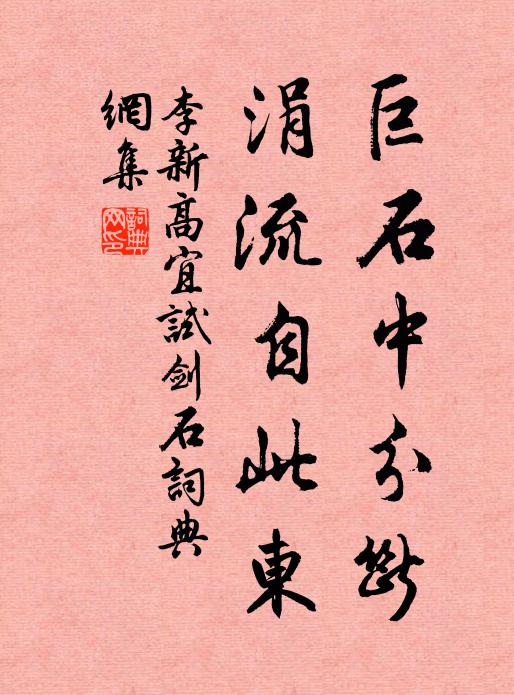 巨石中分斷
涓流自此東
李新高宜試劍石詞典
網集
詞典
网印